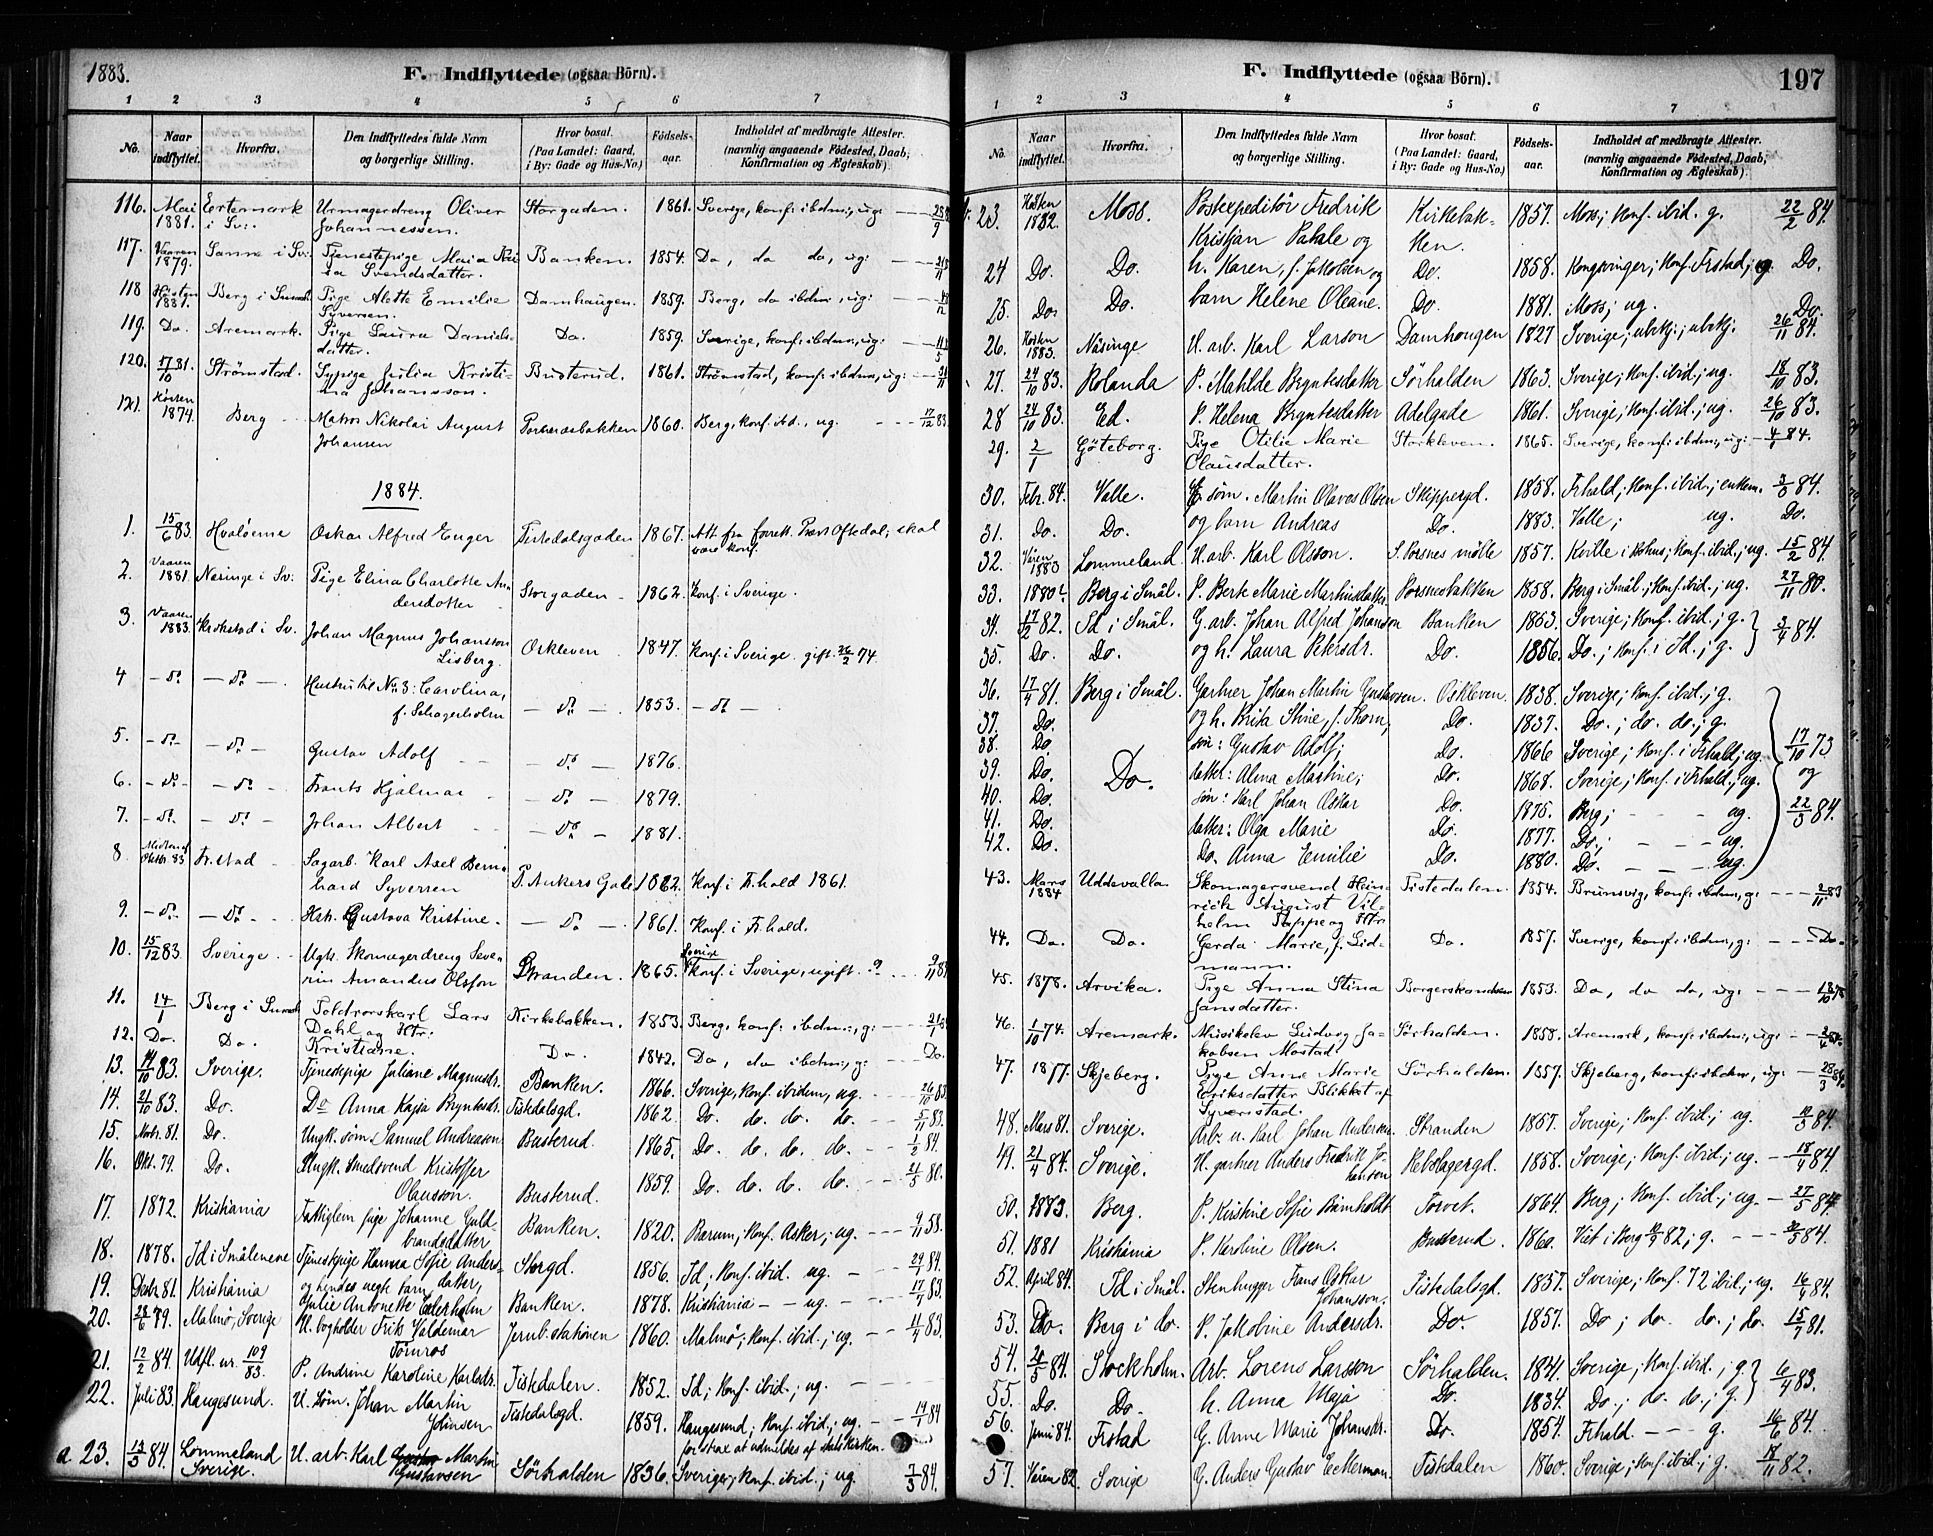 1883.
F. Indflyttede (ogsaa Börn).
1 2 3 4 5 6 7
No. Naar indflyttet. Hvorfra. Den Indflyttedes fulde Navn og borgerlige Stilling. Hvor bosat. (Paa Landet: Gaard, i By: Gade og Hus-No.) Födsels-aar. Indholdet af medbragte Attester. (navnlig angaaende Födested, Daab, Konfirmation og Ægteskab).
116. Mai 1881. i Sv. Urmagerdreng Oliver Johannessen. Storgaden. 1861. Sverige, konf: ibdm:, ug:
117. Vaaren 1879. Sanne i Sv: Tjenestepige Maia Svendsdatter. Banken. 1854. Do, do do, ug:
118 Høsten 1881. Berg i Pige Alette Emilie Syversen. Damhaugen. 1859. Berg, do ibdm:, ug:
119. Do. Aremark. Pige Laura Daniels-datter. Do. 1859. Sverige, konf: ibdm:, ug:
120. 17/10 81. Strømstad. Sypige Julia Kristi-na Johansson. Busterud. 1861. Strømstad, konf: ibdm:, ug:
121. Høsten 1874. Berg Matros Nikolai August Johansen 1860. Berg, konf. ibd., ug. 17/12 83.
1884.
1. 15/6 83. Hvaløerne Oskar Alfred Enger Tistedalsgaden 1867. Att. fra Oftedal; skal være konf.
2. Vaaren 1881. Næringe i Sv: Pige Elina Charlotte An-dersdotter Storgaden 1862. Konf. i Sverige.
3. Vaaren 1883. Krokstad i Sv. Johan Magnus Johansson Lisberg. Oskleven 1847. Konf. i Sverige. gift 26/2 74.
4 - do. - do. - Hustru til No 3: Carolina, f. Schagerholm - do. - 1853. - do. -
5. - do. - do. - Gustav Adolf - do. - 1876.
6. - do. - do. Frants Hjalmar - do. - 1879.
7. - do. - do. - Johan Albert - do. - 1881.
8 Midten af Oktbr. 83 Fr.stad Sagarb. Karl Axel Bern-hard Syversen P. Ankers Gade Konf. i Fr.hald 1861.
9. - do. - do. - Hstr. Gustava Kristine. - do. - 1861. Konf. i Fr.hald.
10. 15/12 83. Sverige Ugts. Skomagerdreng Seve-rin Amandus Olsson Stranden. 1865. Konf. i Sverige, ugift.
11. 14/1 Berg i Toldrorskarl Lars Dahl og Hstr. Kirkebakken. 1853. Berg, konf: ibdm:, g:
12. Do. Do. Kristiane. Do. 1842. Do, do ibdm:, g: Do.
13. 14/10 83. Sverige. Tjenestpige Juliane Magnusdr. Banken. 1866. Sverige, konf. ibidem, ug. 26/10 83.
14. 21/10 83. Do. Do Anna Kajsa Bryntesdr. Tistedalsgd. 1862. Do. do. do. do. 5/11 83.
15. Novbr. 81. Do. Ungk. søm. Samuel Andreasen Busterud. 1865. Do. do. do. do. 1/2 84.
16. Okt. 79. Do. Ungk. Smedsvend Kristoffer Olausson. Busterud. 1859. Do. do. do. do. 21/5 80.
17. 1872. Kristiania Fattiglem pige Johanne Guld-brandsdatter Banken. 1820. Bærum; Konf. Asker; ug. 9/11 58.
18. 1878. Id i Smålenene Tjenestpige Hanna Sofie Anders-datter, Storgd. 1856. Id; Konf. ibid. ug. 29/7 84.
19. Desbr. 81. Kristiania og hendes uegte barn Julie Antonette Ederholm Banken. 1878. Kristiania - - ug. 17/7 83.
20. 28/6 79. Malmø, Sverige U. bogholder Frits Valdemar Törnros Jernb. stationen 1860. Malmö; Konf. ibid.; ug. 11/7 83.
21. 12/2 84. Udfl. nr. 109/83. P. Andrine Karoline Karlsdr. Tistedalen. 1852. Id; Konf. ibid.; ug.
22. Juli 83. Haugesund. U. søm. Johan Martin Johnsen Tistedalsgd. 1859. Haugesund; Konf. ibid.; ug. 14/1 84
for strax at udmeldes af statskirken.
a 23. 13/3 84. Lommeland Sverige. U. arb. Karl Martin Gustavsen Sörhalden 1836. Sverige; Konf. ibid.; ug 7/3 84.
F. Indflyttede (ogsaa Börn). 197
1 2 3 4 5 6 7
No. Naar indflyttet. Hvorfra. Den Indflyttedes fulde Navn og borgerlige Stilling. Hvor bosat. (Paa Landet: Gaard, i By: Gade og Hus-No.) Födsels-aar. Indholdet af medbragte Attester. (navnlig angaaende Födested, Daab, Konfirmation og Ægteskab).
23. Høsten 1882. Moss. Postexpeditør Fredrik Kristjan og Kirkebak-ken. 1857. Moss; Konf. ibid. g. 22/2 84.
24 Do. Do. h. Karen, f. Jakobsen og Do. 1858. Kongsvinger; Konf. Frstad; g. Do.
25. Do. Do. barn Helene Oleane. Do. 1881. Moss; ug. Do.
26. Høsten 1883. Näsinge U. arb. Karl Larson Damhougen 1827 Sverige; ubekj.; ubekj. 26/11 84.
27. 24/10 83. Rolanda P. Matilde Bryntesdatter Sørhalden 1863. Sverige; Konf. ibid.; ug. 18/10 83.
28 24/10 83. Ed. P. Helena Bryntesdatter Adelgade 1861. Sverige; Konf. ibid.; ug. 26/10 83.
29. 2/1 Göteborg. Pige Otilie Marie Clausdatter. Storkleven. 1865. Sverige, konf: ibdm:, ug: 4/1 84.
30. Febr. 84. Valle. E. søm. Martin Olavas Olsen Skippergd. 1858. Frhald; Konf. ibid.; enkem. 3/3 84.
31. Do. Do. og barn Andreas Do. 1883. Valle; ug. Do.
32. Våren 1883 Lommeland. U. arb. Karl Olsson. S. Porsnes mølle 1857. Kville i Bohus; Konf. ibid.; ug. 15/2 84.
33. 1880 Berg i Smål. P. Berte Marie Martinsdatter Porsnesbakken 1858. Berg i Smål.; Konf. ibid.; ug. 27/11 80.
34. 17/2 82. Id i Smål. G. arb. Johan Alfred Johanson Banken 1853. Sverige; Konf. ibid.; g. 3/4 84.
35. Do. Do. og h. Laura Petersdr. Do. 1856. Do.; Konf. i Id.; g.
36. 17/4 81. Berg i Smål. Gartner Johan Martin Gustavsen. Oskleven 1838. Sverige; Konf. ibid.; g.
37. Do. og h. Brita Stine, f. Thorn, Do. 1837. Do.; do. do.; g.
38. Do. søn: Gustav Adolf; Do. 1866 Sverige; Konf. i Frhald; ug. 17/10 73
39. Do. Do. datter: Alma Mastine; Do. 1868. Sverige; Konf. i Frhald.; ug. og
40. Do. søn: Karl Johan Oskar Do. 1875. Berg; ug. 22/3 84.
41. Do. datter: Olga Marie Do. 1877. Do.; ug.
42. Do. Do. Anna Emilie Do. 1880. Do. ug.
43. Mars 1884 Uddevalla. Skomagersvend Hein-rich August Vil-helm og Hstr. Tistedalen. 1854. Brunsvig, konf: ibdm:, g: 2/11 83
44. Do. Do. Gerda Marie, f. Lid-mann. Do. 1857. Sverige, konf: ibdm:, g: Do.
45. 1878. Arvika. Pige Anna Stina Jansdatter. 1853. Do, do do, ug:
46. 1/10 74. Aremark. Musikelev Ludvig Ja-kobsen Mostad. Sørhalden. 1858. Aremark, konf: ibdm:, ug:
47. 1877. Skjeberg. Pige Anne Marie Eriksdatter Syverstad. Sørhalden. 1857. Skjeberg, konf: ibdm, ug:
48. Mars 81. Sverige. Arb. u. Karl Johan Anderson Stranden 1857. Sverige; Konf. ibid.; ug.
49. 21/4 84. Sverige. U. gartner Anders Fredrik Jo-hanson Rebslagergd. 1858. Sverige; Konf. ibid.; ug. 18/4 84
50. 1883. Berg. P. Kristine Sofie Bamholdt Torvet. 1864. Berg; Konf. ibid.; ug. 27/5 84.
51. 1881 Kristiania P. Karoline Olsen. Busterud. 1860. Viet i Berg 82; g.
52. April 84. Id i Smål. Stenhugger Frans Oskar Johansson. Tistedalsgd. 1857. Sverige; Konf. 72 ibid.; ug. 16/4 84.
53. Do. Berg i do. P. Jakobine Andersdr. Do. 1857. Do; do. do.; do. 15/7 81.
54. 20/5 84. Stockholm. Arb. Lorens Larsson Sörhalden. 1841. Sverige; Konf. ibid.; g. 6/4 83.
55. Do. Do. h. Anna Maja Do. 1834. Do.; do. do.; g.
56. Juni 84. Frstad G. Anne Marie Johansdr. Do. 1854. Frhald. g. 16/6 84.
57. Våren 82. Sverige G. Anders Gustav Eckerman. Tistedalen 1860. Sverige; Konf. ibid.; g. 18/11 82.